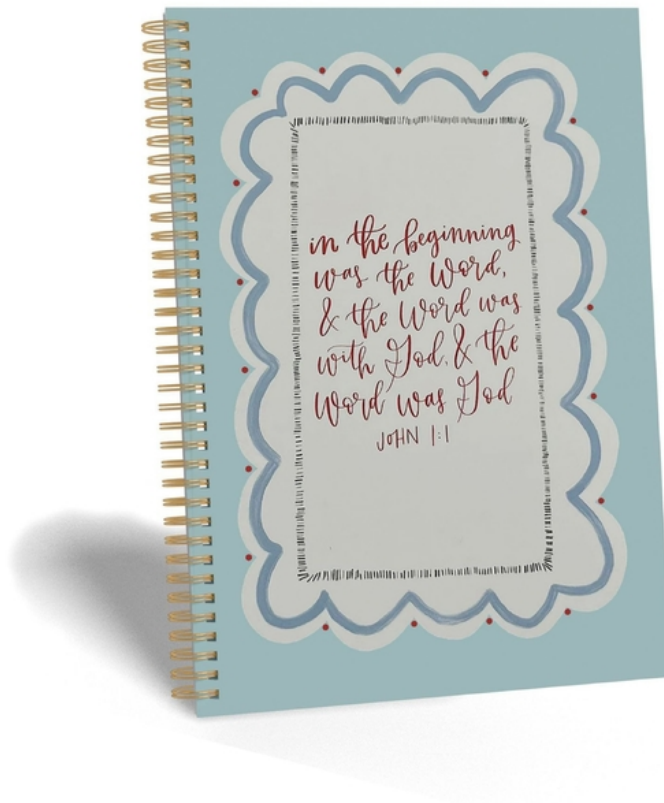 in the beginning
was the Word,
& the Word was
with God, & the
Word was God
JOHN 1:1